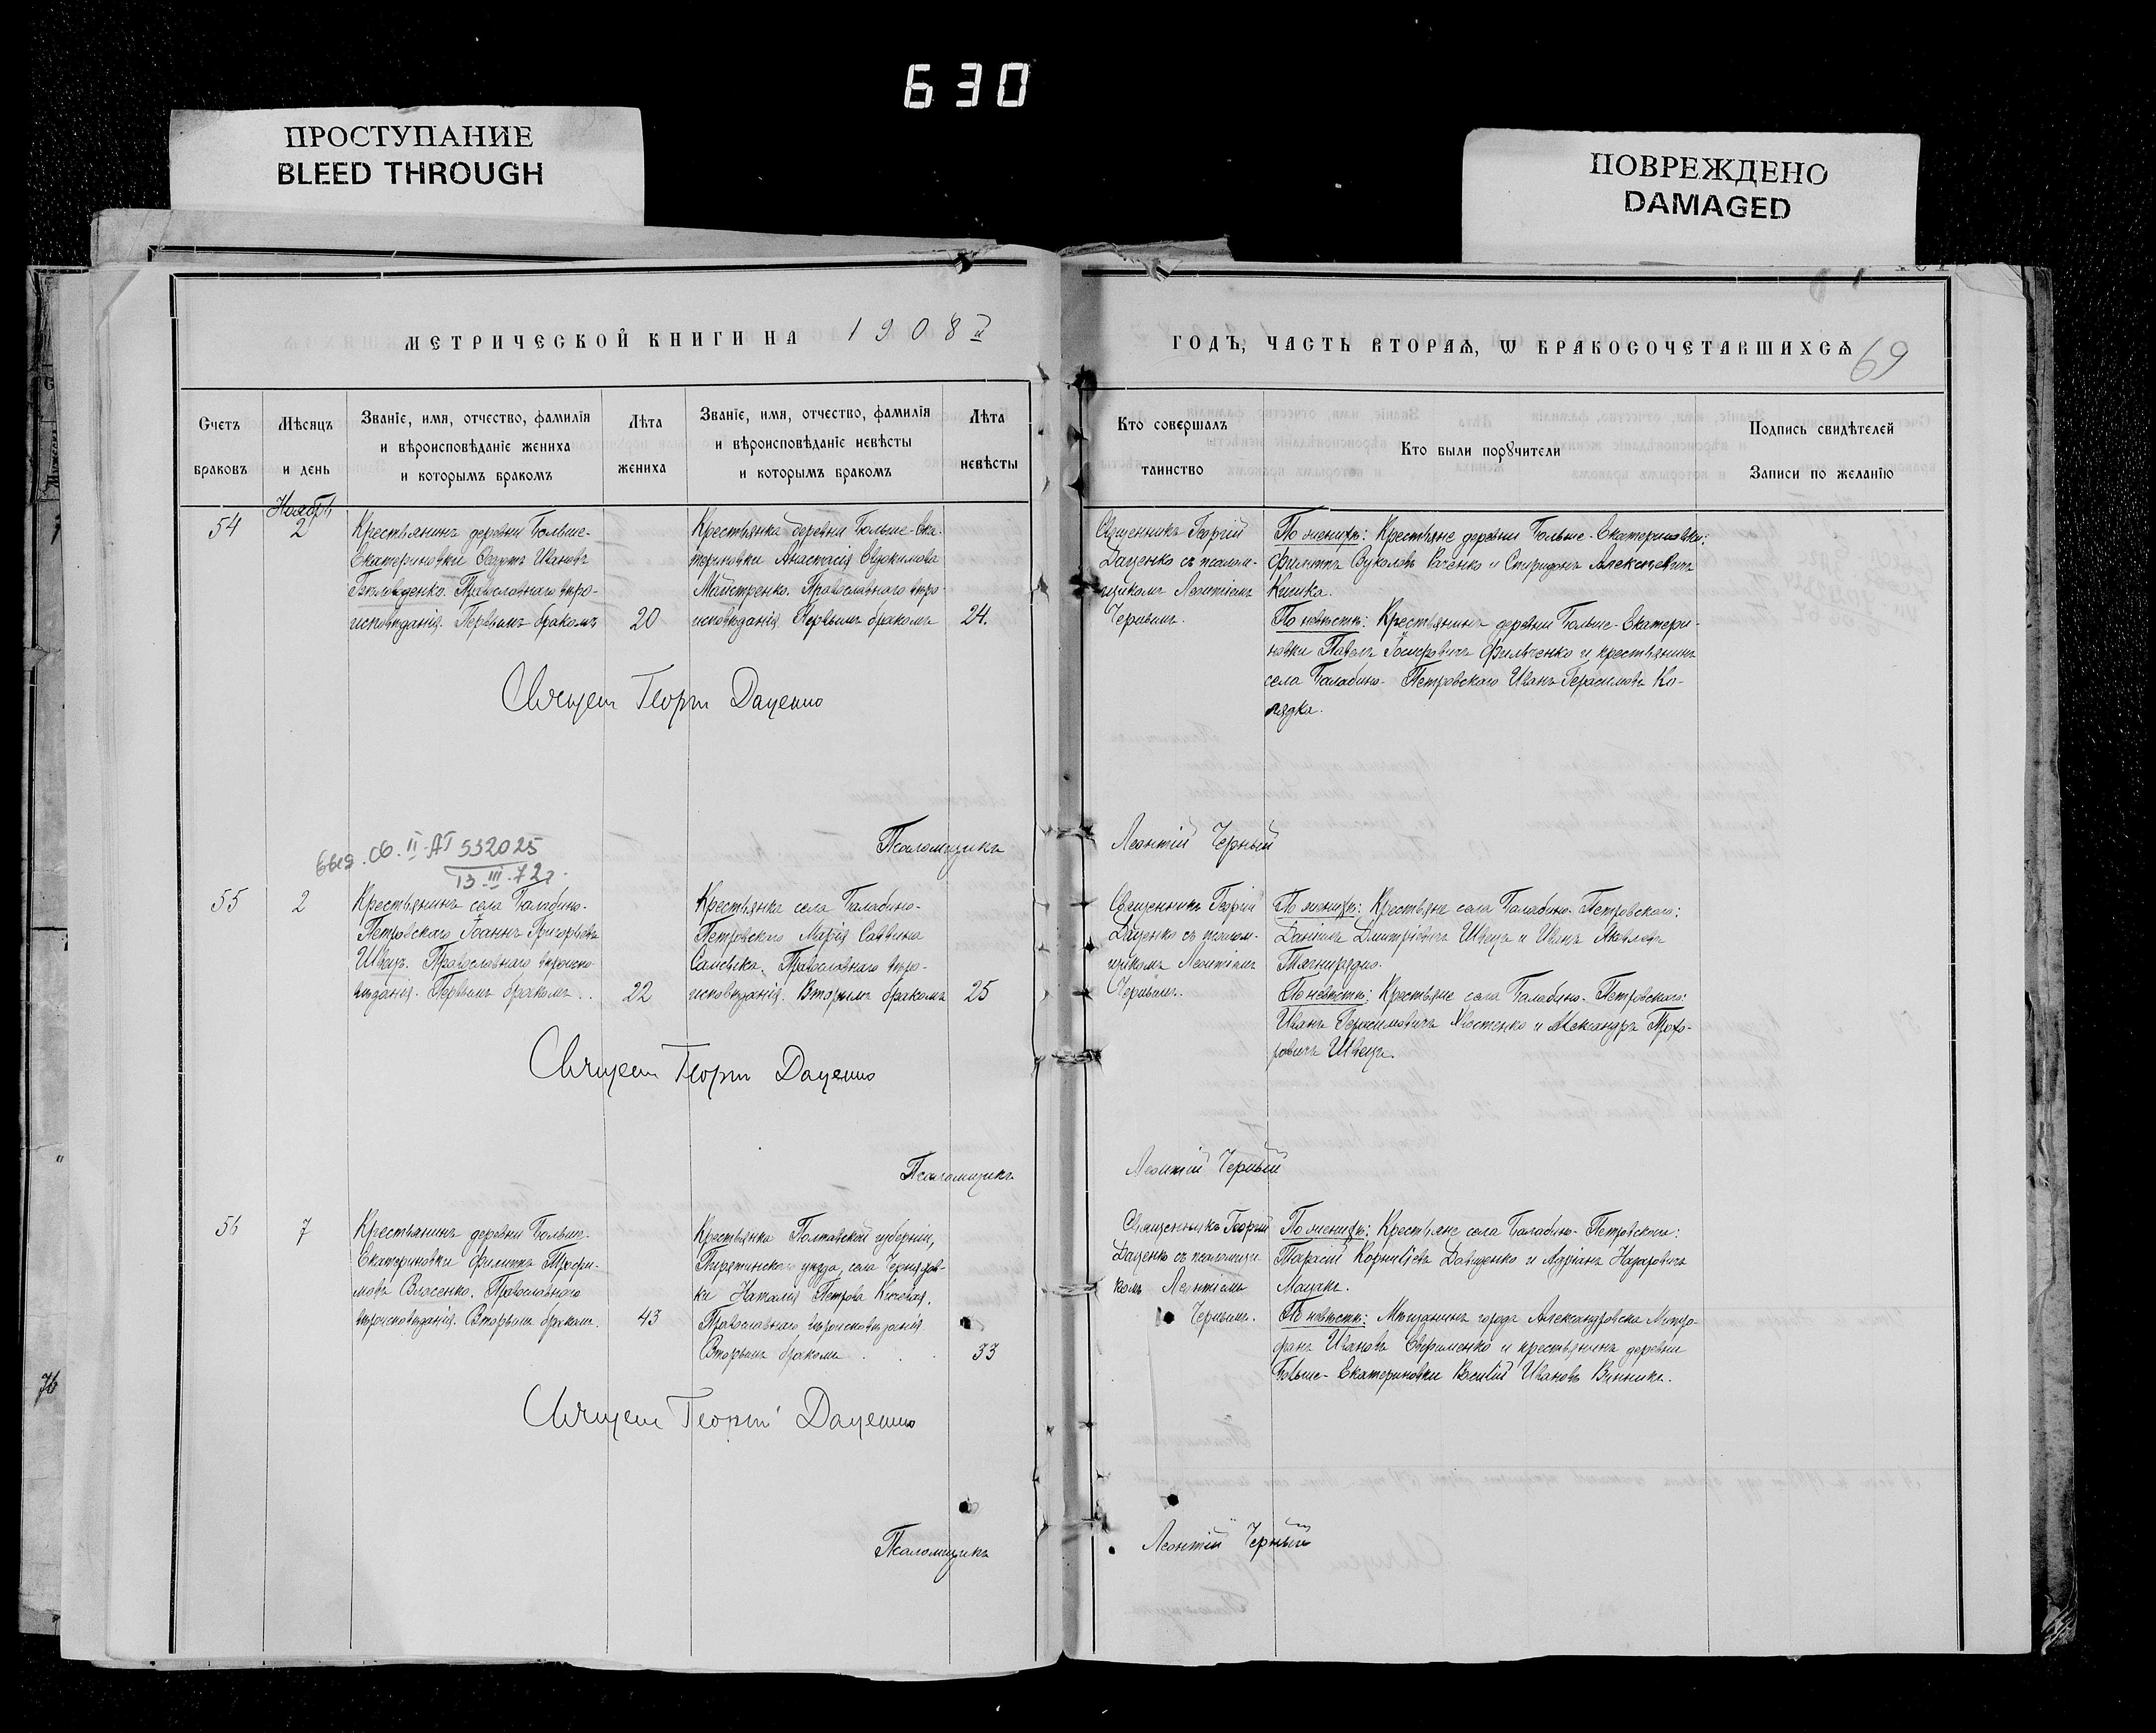 630
ПРОСТУПАНИЕ
BLEED THROUGH
ПОВРЕЖДЕНО
DAMAGED
МЕТРИЧЕСКОЙ КНИГИ НА 1908й
ГОДЪ, ЧАСТЬ ВТОРАѦ, Ѡ БРАКОСОЧЕТАВШИХСѦ
69
Счетъ
браковъ
Мѣсяцъ
и день
Званіе, имя, отчество, фамилія
и вѣроисповѣданіе жениха
и которымъ бракомъ
Лѣта
жениха
Званіе, имя, отчество, фамилія
и вѣроисповѣданіе невѣсты
и которымъ бракомъ
Лѣта
невѣсты
Кто совершалъ
таинство
Кто были порꙋчители
Подпись свидѣтелей
Записи по желанію
Ноябрь
54
2
Крестьянинъ деревни Больше-
Екатериновки Ивановъ
Православнаго вѣро-
исповѣданія. Первымъ бракомъ
20
Крестьянка деревни Больше-Ека-
териновки Анастасія Евфимова
Майстренко. Православнаго вѣро-
исповѣданія Первымъ бракомъ
24.
Священникъ Георгій
Даценко съ псалом-
щикомъ Леонтіемъ
Чернымъ.
По женихѣ: Крестьяне деревни Больше-Екатериновки:
Филиппъ Вуколовъ и Спиридонъ Алексѣевичъ
По невѣстѣ: Крестьянинъ деревни Больше-Екатери-
новки Павелъ Фильченко и крестьянинъ
села Балабино-Петровскаго Иванъ Герасимовъ Ко-
лядка.
Священ Георгій Даценко
Псаломщикъ
Леонтій Черный
выд. св. II-АП 532025
13.III.72г.
55
2
Крестьянинъ села Балабино-
Петровскаго Іоаннъ Григорьевъ
Швецъ. Православнаго вѣроиспо-
вѣданія. Первымъ бракомъ.
22
Крестьянка села Балабино-
Петровскаго Марія Саввина
Православнаго вѣро-
исповѣданія. Вторымъ бракомъ
25
Священникъ Георгій
Даценко съ псалом-
щикомъ Леонтіемъ
Чернымъ.
По женихѣ: Крестьяне села Балабино-Петровскаго:
Даніилъ Дмитріевичъ Швецъ и Иванъ Яковлевъ
Тягнирядно.
По невѣстѣ: Крестьяне села Балабино-Петровскаго:
Иванъ Герасимовичъ Костенко и Александръ
Швецъ.
Священ Георгій Даценко
Псаломщикъ
Леонтій Черный
56
7
Крестьянинъ деревни Больше-
Екатериновки Филиппъ Трофи-
мовъ Власенко. Православнаго
вѣроисповѣданія. Вторымъ бракомъ.
43
Крестьянка Полтавской губерніи,
Пирятинскаго уѣзда, села
Наталія Петрова
Православнаго вѣроисповѣданія
Вторымъ бракомъ
33
Священникъ Георгій
Даценко съ псаломщи-
комъ Леонтіемъ
Чернымъ.
По женихѣ: Крестьяне села Балабино-Петровскаго:
Тарасій Корнилевъ Давиденко и Назаровичъ
Мацакъ.
По невѣстѣ: Мѣщанинъ города Александровска Митро-
фанъ Ивановъ Ефименко и крестьянинъ деревни
Больше-Екатериновки Василій Ивановъ Винникъ.
Священ Георгій Даценко
Псаломщикъ
Леонтій Черный
76